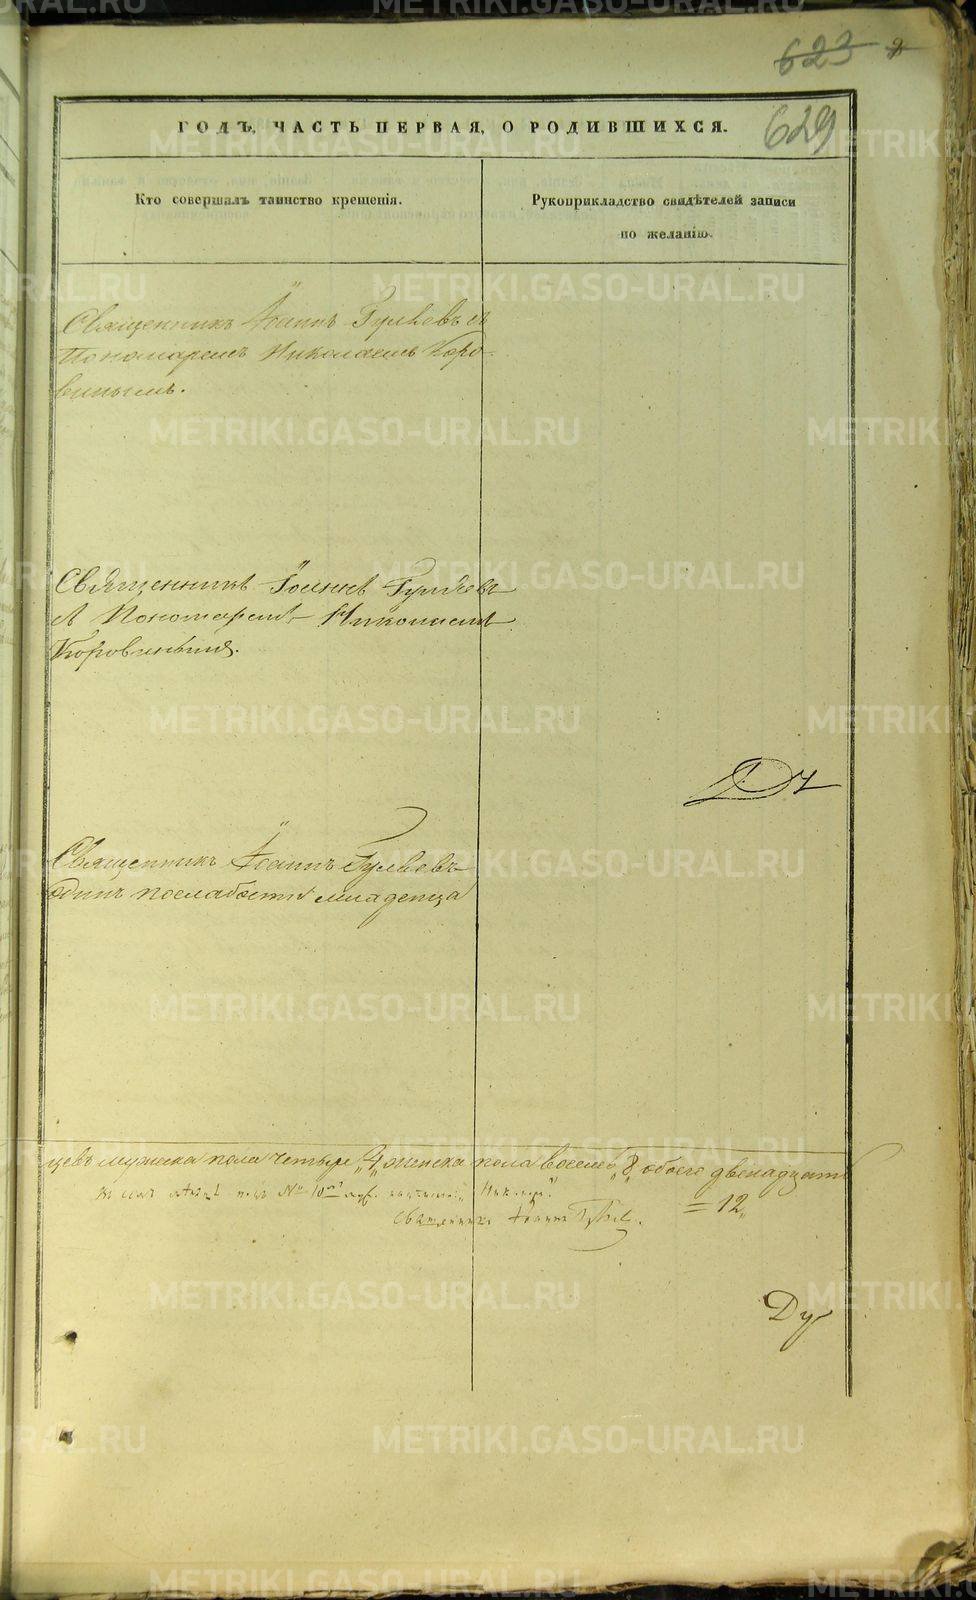 623
629
ГОДЪ, ЧАСТЬ ПЕРВАЯ, О РОДИВШИХСЯ.
Кто совершалъ таинство крещенія.
Рукоприкладство свидѣтелей записи
по желанію.
Священникъ Іоаннъ Гуляевъ съ
Пономаремъ Николаемъ Коро-
винымъ.
Священникъ Іоаннъ Гуляевъ
съ Пономаремъ Николаемъ
Коровинымъ.
Священникъ Іоаннъ Гуляевъ
одинъ послабости младенца
цевъ мужеска пола четыре „4„ женска пола восемь „8„ обоего двенадцать
= 12„
Священникъ Іоаннъ
METRIKI.GASO-URAL.RU